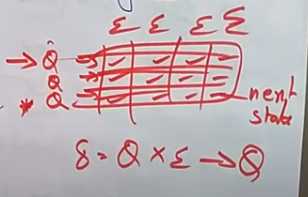 Σ Σ Σ Σ
→ Q
Q
* Q
next
state
δ = Q × Σ → Q